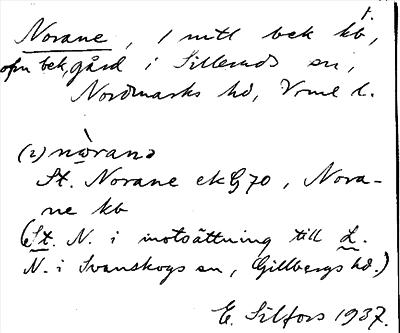 1.
Norane, 1 mtl bek kb,
ofm bek, gård i Silleruds sn,
Nordmarks hd, Vrml l.
(2) nòranə
St. Norane ek G 70, Nora-
ne kb
(St. N. i motsättning till L.
N. i Svanskogs sn, Gillbergs hd.)
E. Silfors 1937.